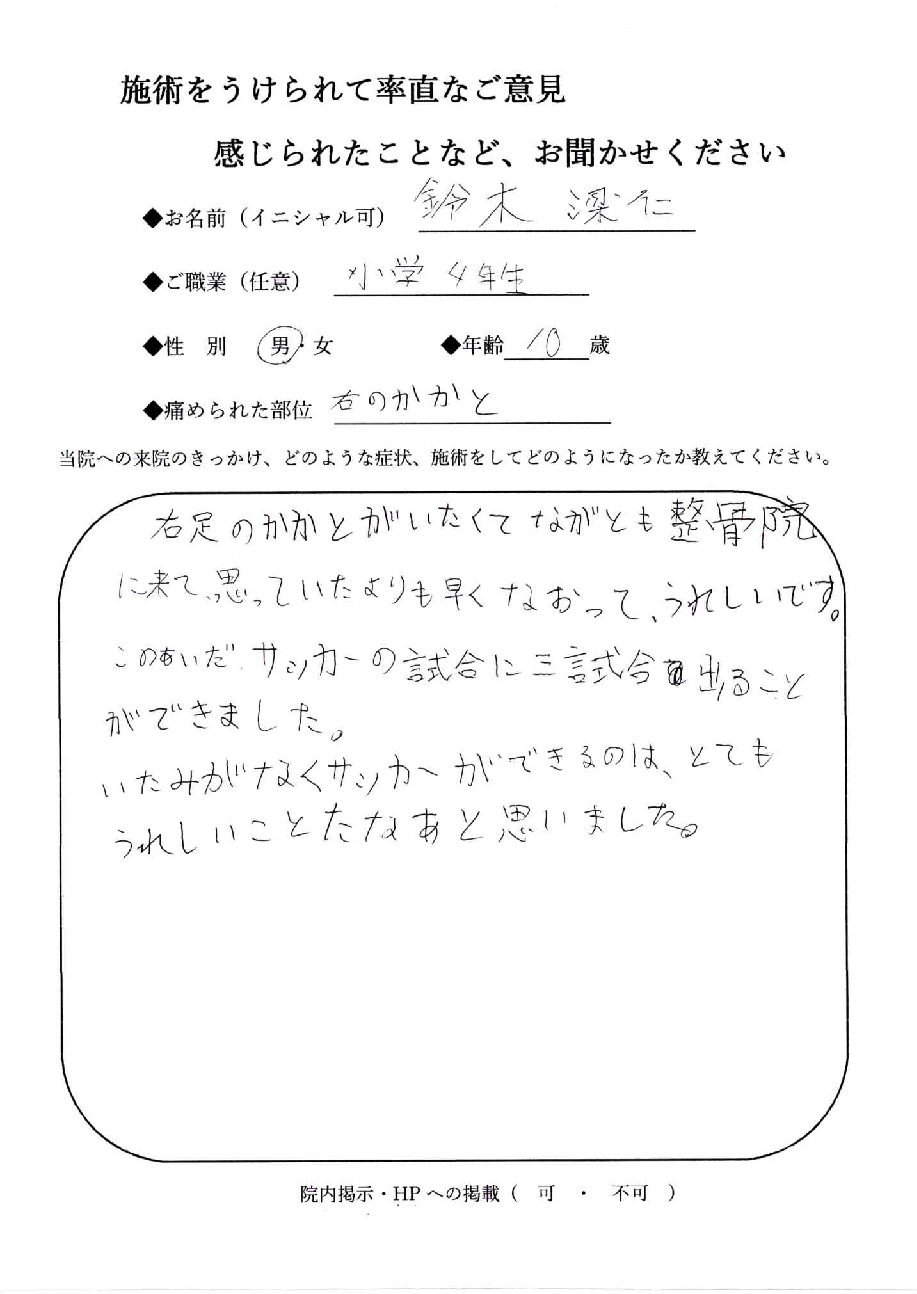 施術をうけられて率直なご意見
感じられたことなど、お聞かせください
◆お名前（イニシャル可） 鈴木 滐仁
◆ご職業（任意） 小学4年生
◆性 別 男・女 ◆年齢 10 歳
◆痛められた部位 右のかかと
当院への来院のきっかけ、どのような症状、施術をしてどのようになったか教えてください。
右足のかかとがいたくてながとも整骨院
に来て、思っていたよりも早くなおって、うれしいです。
このあいだ、サッカーの試合に三試合出ること
ができました。
いたみがなくサッカーができるのは、とても
うれしいことたなあと思いました。
院内掲示・HPへの掲載（ 可 ・ 不可 ）